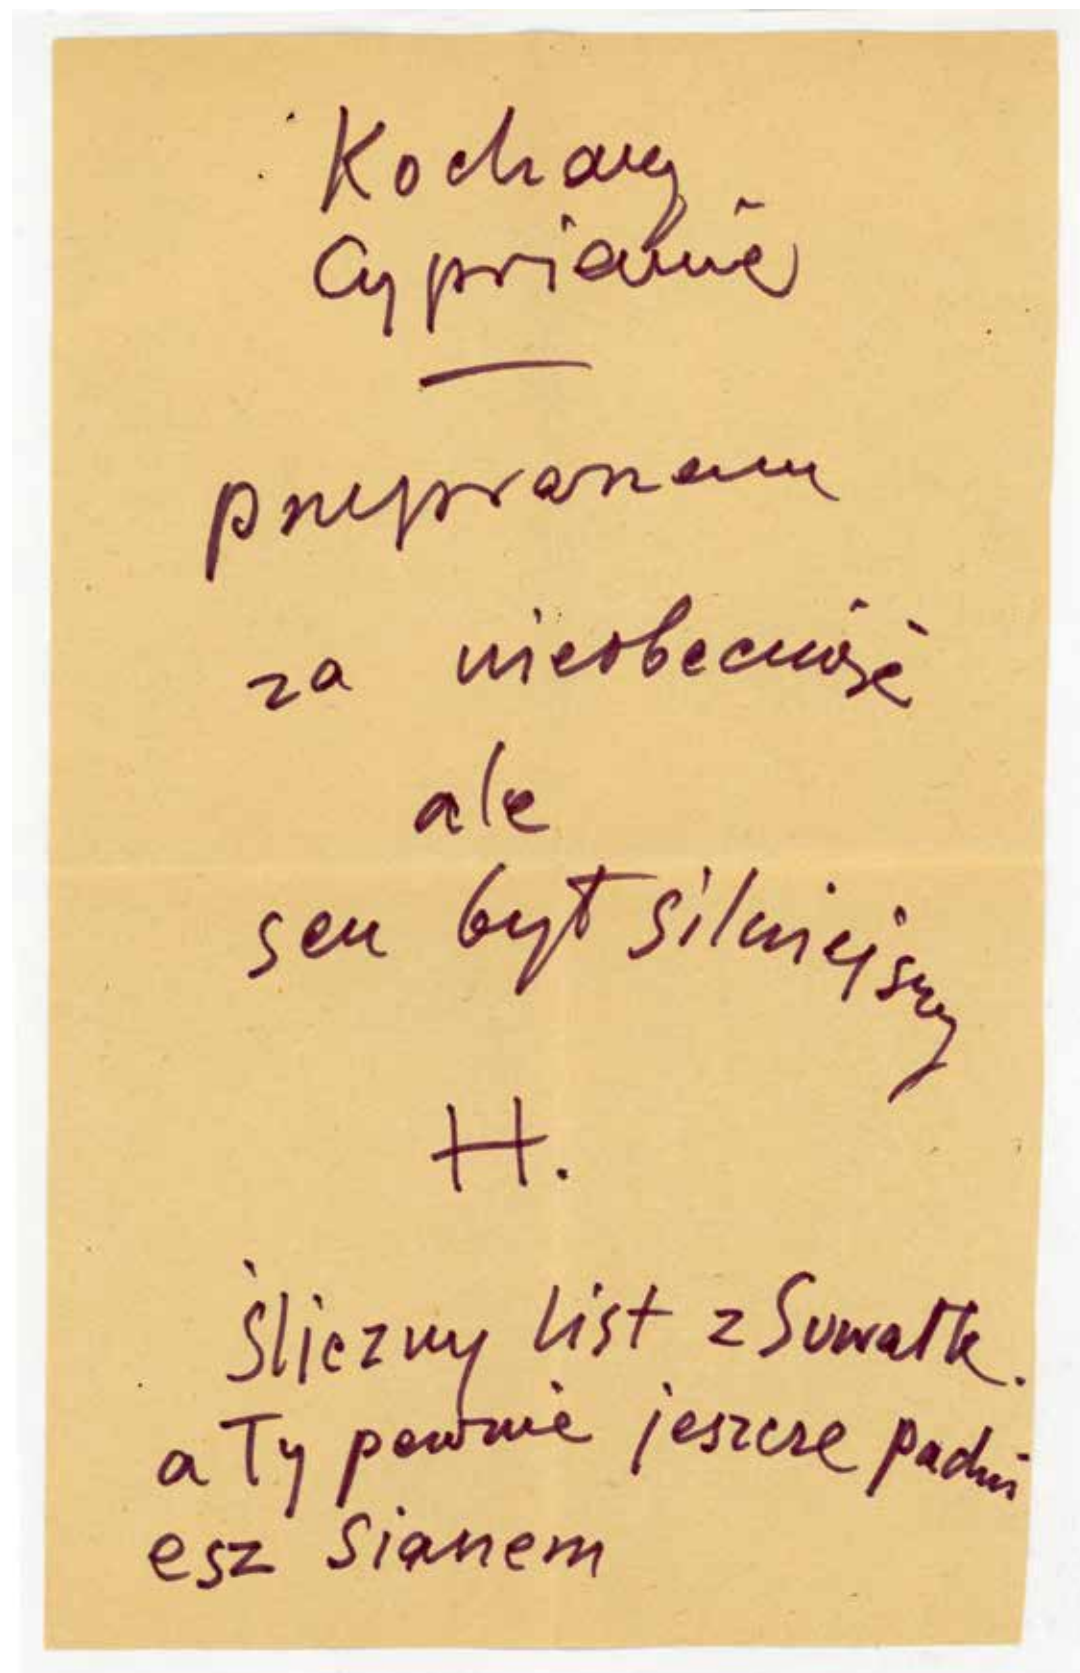 Kochany
Cyprianie
przepraszam
za nieobecność
ale
sen był silniejszy
H.
Śliczny list z Suwałk.
a Ty pewnie jeszcze pachni
esz sianem